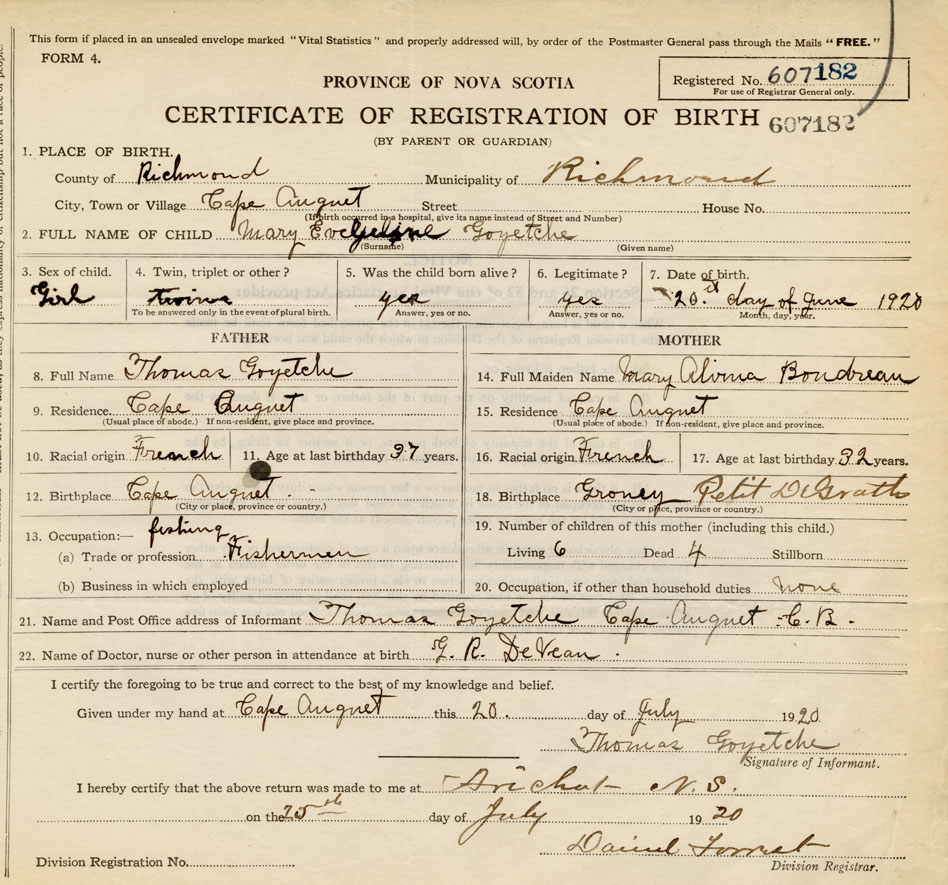 This form if placed in an unsealed envelope marked "Vital Statistics" and properly addressed will, by order of the Postmaster General pass through the Mails "FREE."
FORM 4.
Registered No. 607182
For use of Registrar General only.
PROVINCE OF NOVA SCOTIA
CERTIFICATE OF REGISTRATION OF BIRTH 607182
(BY PARENT OR GUARDIAN)
1. PLACE OF BIRTH.
County of Richmond Municipality of Richmond
City, Town or Village Cape Auguet Street House No.
(If birth occurred in a hospital, give its name instead of Street and Number)
2. FULL NAME OF CHILD Mary Evegeline Goyetche
(Surname) (Given name)
3. Sex of child. 4. Twin, triplet or other? 5. Was the child born alive? 6. Legitimate? 7. Date of birth.
Girl twins yes yes 20.st day of June 1920
To be answered only in the event of plural birth. Answer, yes or no. Answer, yes or no. Month, day, year.
FATHER MOTHER
8. Full Name Thomas Goyetche 14. Full Maiden Name Mary Alvina Boudreau
9. Residence. Cape Auguet 15. Residence Cape Auguet
(Usual place of abode.) If non-resident, give place and province. (Usual place of abode.) If non-resident, give place and province.
10. Racial origin French 11. Age at last birthday 37 years. 16. Racial origin French 17. Age at last birthday 32 years.
12. Birthplace Cape Auguet. 18. Birthplace Petit DeGrath
(City or place, province or country.) (City or place, province or country.)
13. Occupation:— fishing 19. Number of children of this mother (including this child.)
(a) Trade or profession Fishermen Living 6 Dead 4 Stillborn
(b) Business in which employed 20. Occupation, if other than household duties none
21. Name and Post Office address of Informant Thomas Goyetche Cape Auguet C.B.
22. Name of Doctor, nurse or other person in attendance at birth G. R. DeVean.
I certify the foregoing to be true and correct to the best of my knowledge and belief.
Given under my hand at Cape Auguet this 20. day of July 1920
Thomas Goyetche
Signature of Informant.
I hereby certify that the above return was made to me at Arichat N.S.
on the 25th day of July 1920
Daniel Forrest
Division Registration No. Division Registrar.